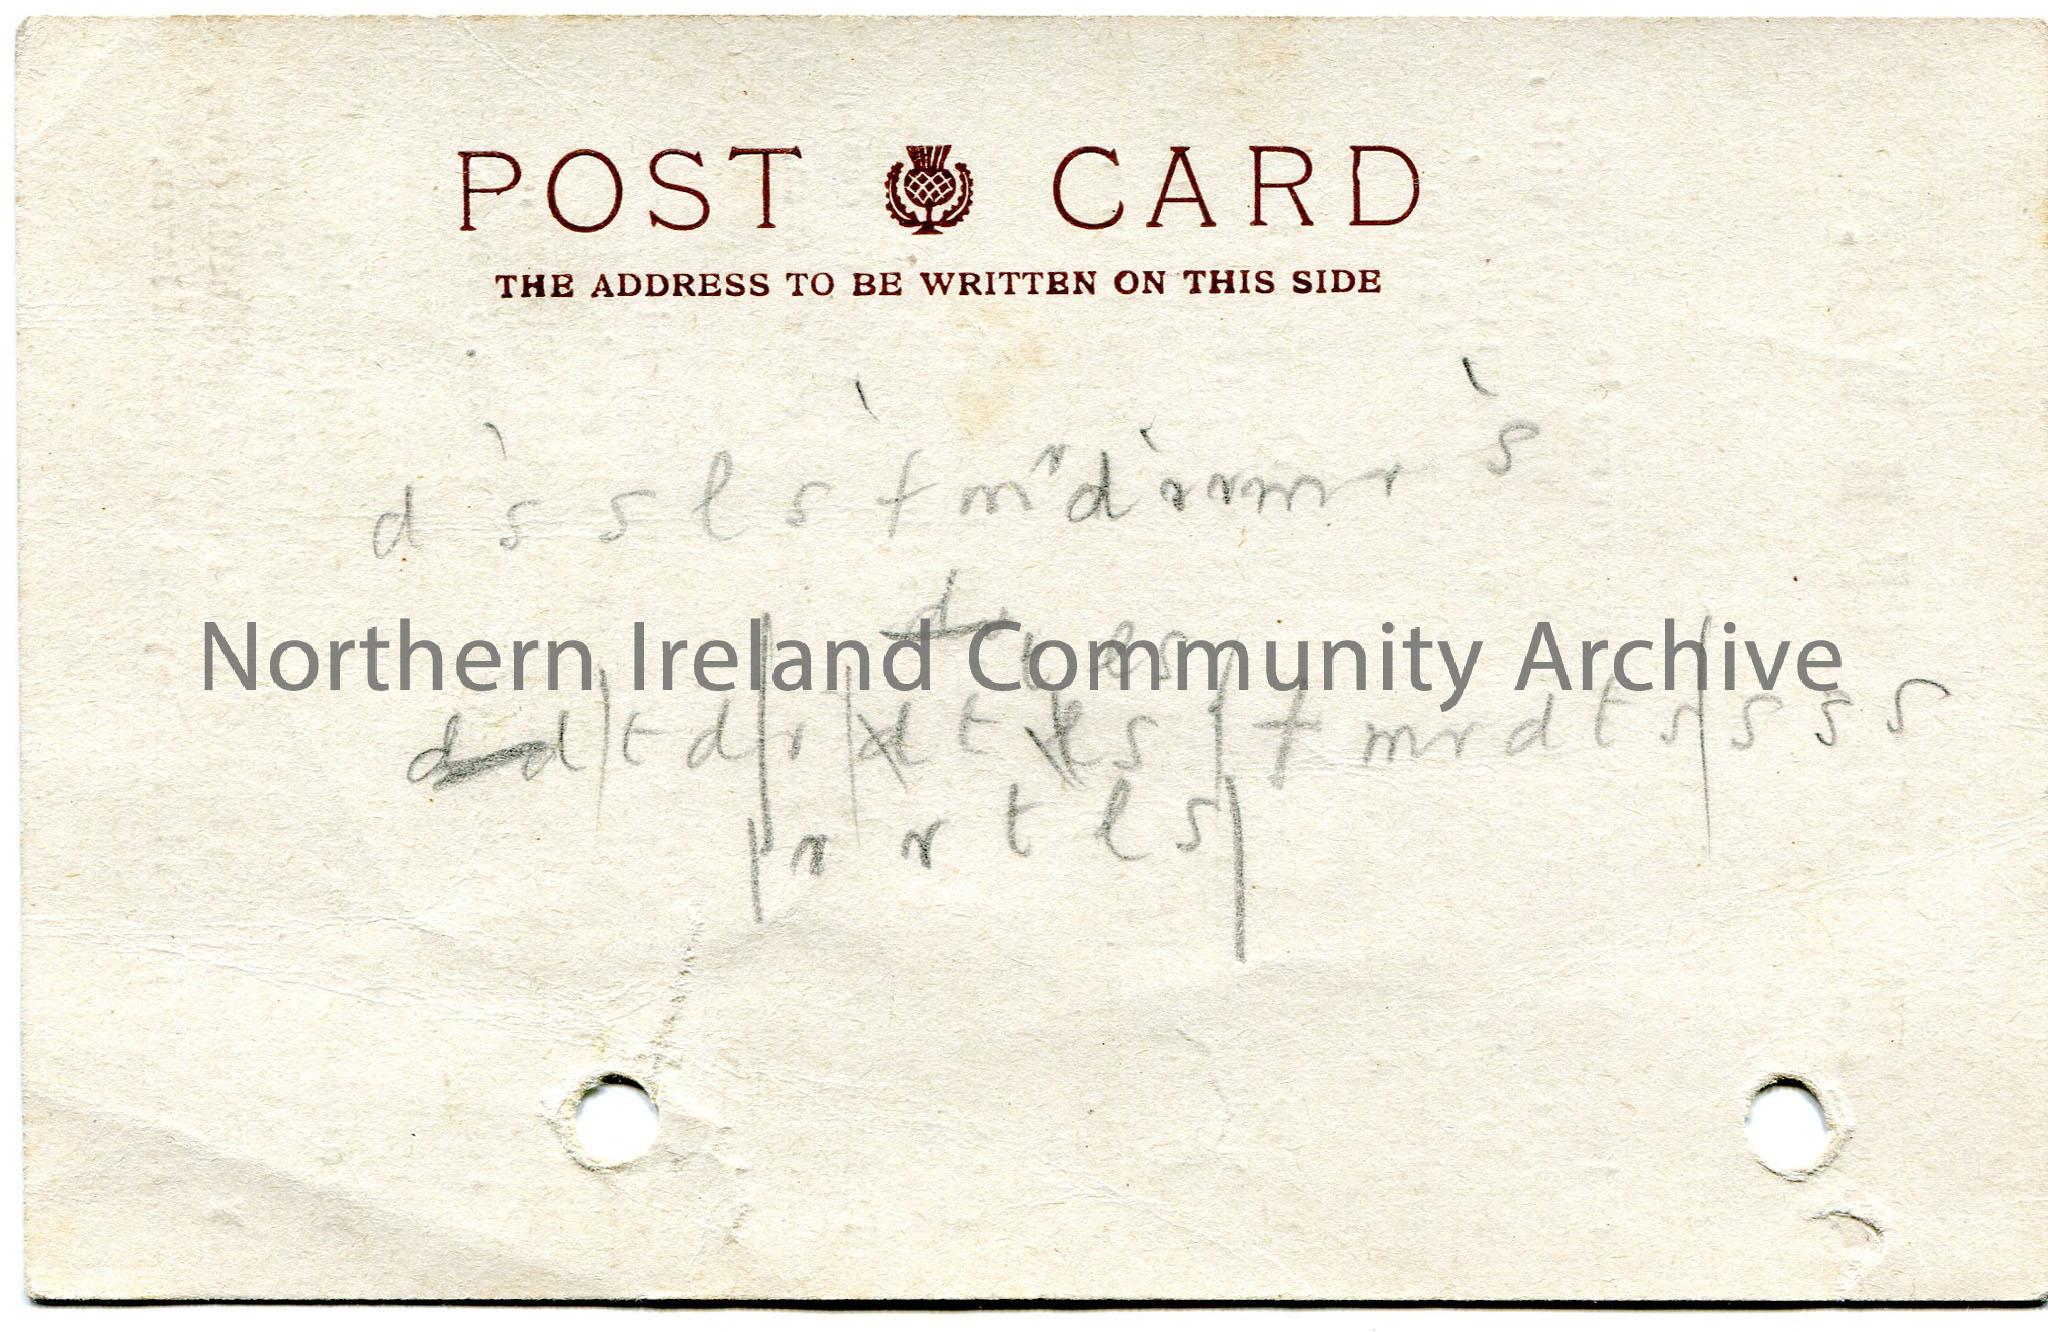 POST CARD
THE ADDRESS TO BE WRITTEN ON THIS SIDE
d s s l s f m r d r r m r s
d
l s
Northern Ireland Community Archive
d d | t d | r | d t l s | f m r d t s | s s s
| r r t l s |